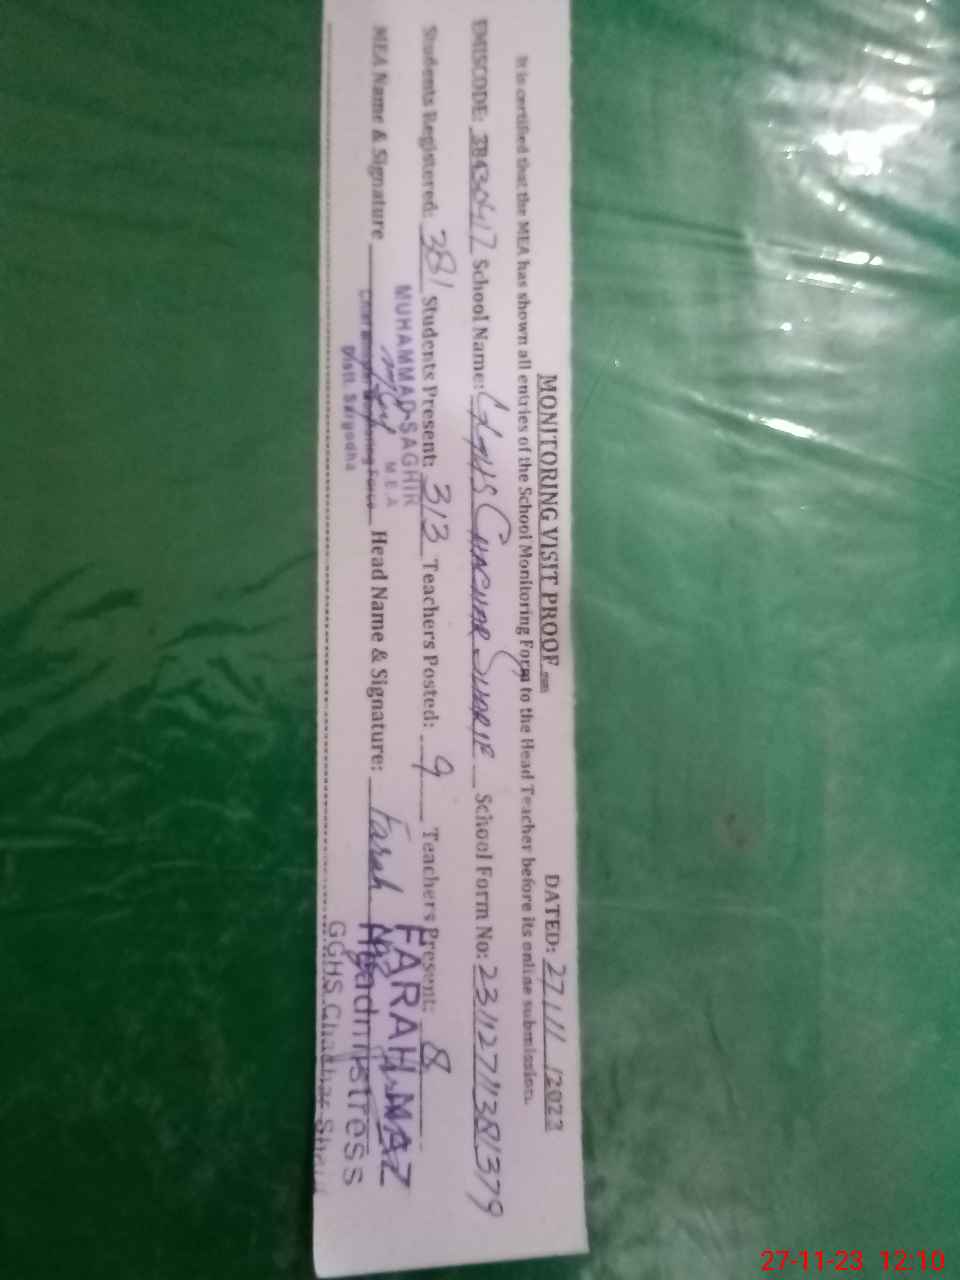 MONITORING VISIT PROOF DATED: 27/11/2023
It is certified that the MEA has shown all entries of the School Monitoring Form to the Head Teacher before its online submission.
EMISCODE: 38430417 School Name: GGHS School Form No: 23112711381379
Students Registered: 381 Students Present: 313 Teachers Posted: 9 Teachers Present: 8
MEA Name & Signature Head Name & Signature: Farah Naz
MUHAMMAD SAGHIR
M E A
Distt. Sargodha
FARAH NAZ
Headmistress
GGHS Chachar
27-11-23 12:10